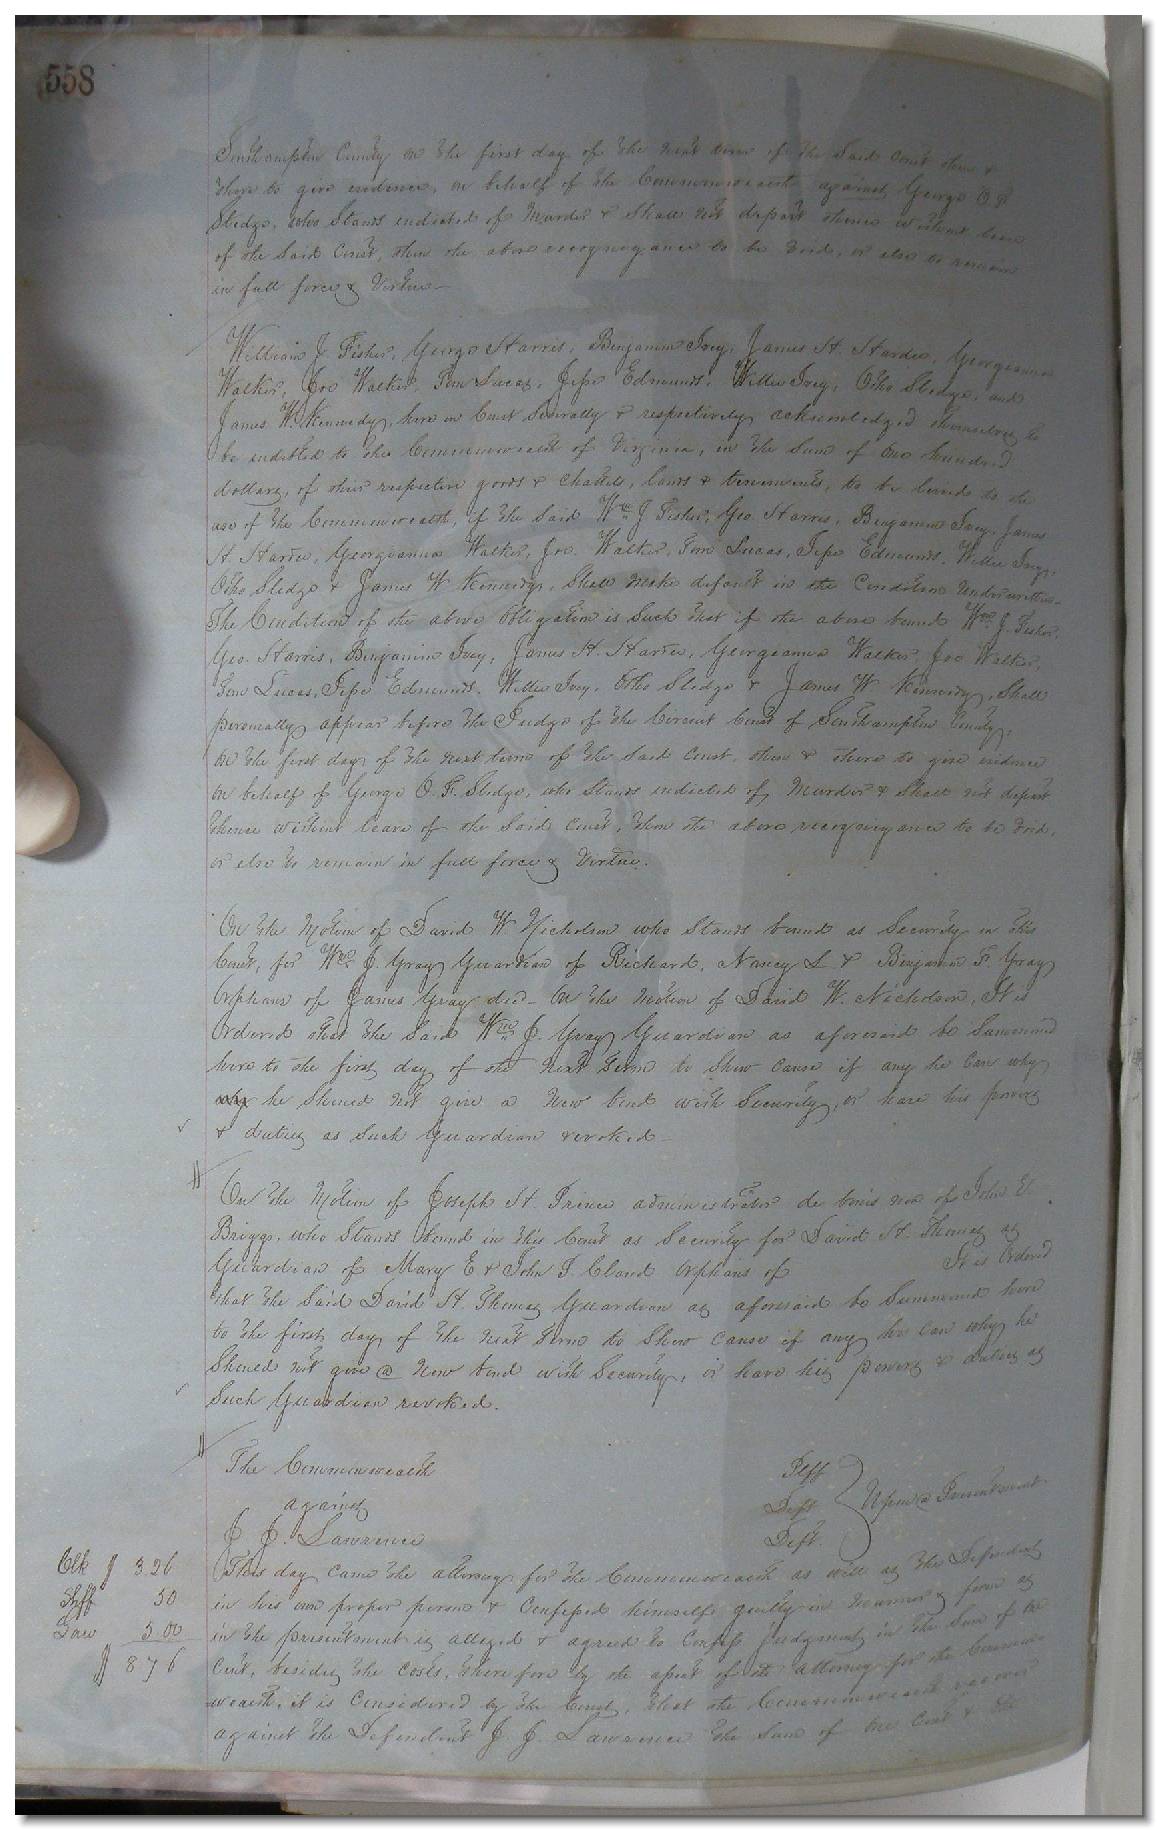 558
Southampton County on the first day of the next term of the said court then &
there to give evidence, on behalf of the Commonwealth against George O. F.
Sledge, who Stands indicted of Murder & Shall not depart thence without leave
of the Said Court, then the above recognizance to be void, or else to remain
in full force & Virtue—
William J Fisher, George Harris, Benjamin Ivey, James H. Hardee, Georgeanna
Walker, Joe Walker, Tom Lucas, Jesse Edmunds, Willie Ivey, Otho Sledge, and
James W. Kennedy, here in Court Severally & respectively acknowledged themselves to
be indebted to the Commonwealth of Virginia, in the Sum of One hundred
dollars, of their respective goods & chattels, lands & tenements, to be levied to the
use of the Commonwealth, if the Said Wm J Fisher, Geo. Harris, Benjamin Ivey, James
H. Hardee, Georgeanna Walker, Joe. Walker, Tom Lucas, Jesse Edmunds, Willie Ivey,
Otho Sledge & James W Kennedy, Shall make default in the Condition Underwritten—
The Condition of the above Obligation is Such that if the above bound Wm J. Fisher,
Geo. Harris, Benjamin Ivey, James H. Hardee, Georgeanna Walker, Joe Walker,
Tom Lucas, Jesse Edmunds, Willie Ivey, Otho Sledge & James W Kennedy, Shall
personally appear before the Judge of the Circuit Court of Southampton County,
on the first day of the next term of the Said Court, then & there to give evidence
on behalf of George O. F. Sledge, who Stands indicted of Murder & Shall not depart
thence without leave of the Said Court, then the above recognizance to be void,
or else to remain in full force & Virtue.
On the Motion of David W Nicholson who Stands bound as Security in this
Court, for Wm J. Gray Guardian of Richard, Nancy L & Benjamin F. Gray
Orphans of James Gray decd— On the Motion of David W. Nicholson, It is
Ordered that the Said Wm J. Gray Guardian as aforesaid be Summoned
here to the first day of the next term to Shew cause if any he can why
why he Should not give a New bond with Security, or have his powers
& duties as Such Guardian revoked—
On the Motion of Joseph H. Prince administrator de bonis non of John E
Briggs, who Stands bound in this Court as Security for David H. Thomas as
Guardian of Mary E & John T. Claud Orphans of It is Ordered
that the Said David H. Thomas Guardian as aforesaid be Summoned here
to the first day of the next term to Shew cause if any he can why he
Should not give a New bond with Security, or have his powers & duties as
Such Guardian revoked.
The Commonwealth Plff
against Deft Upon a Presentment
J. J. Lawrence Deft.
Clk $ 3.26
Shff 50
Law 5 00
$ 8 76
This day came the attorney for the Commonwealth as well as the Defendent
in his own proper person & Confessed himself guilty in Manner & form as
in the presentment is alleged & agreed to Confess Judgment in the Sum of One
Cent, besides the costs, therefore by the assent of the attorney for the Common-
wealth, it is Considered by the Court, that the Commonwealth recover
against the Defendent J. J. Lawrence the Sum of One Cent & the